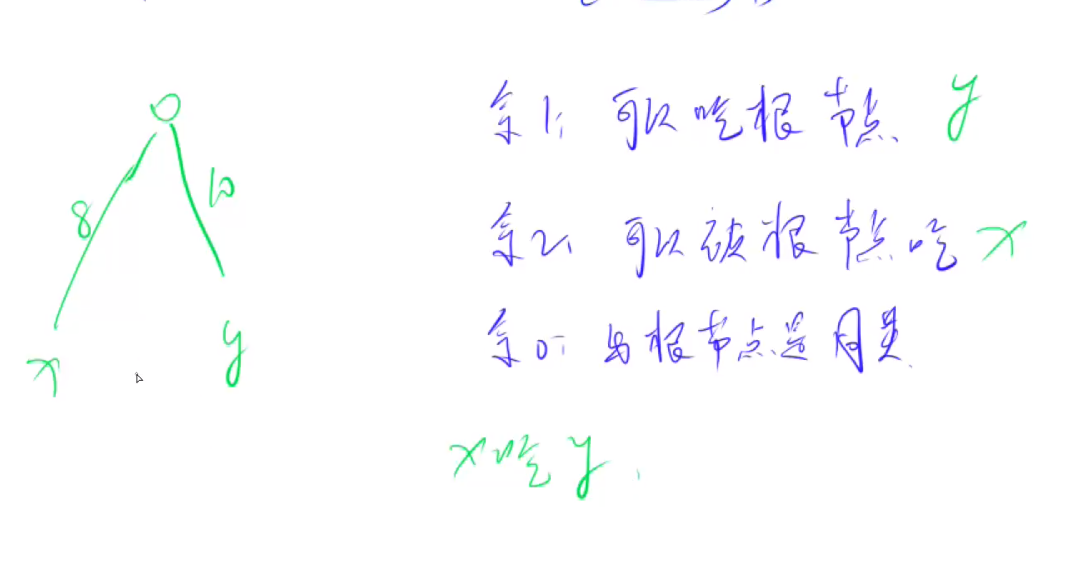 余1: 可以吃根节点 y
余2: 可以被根节点吃 x
余0: 与根节点是同类.
x吃y.
8
10
x
y